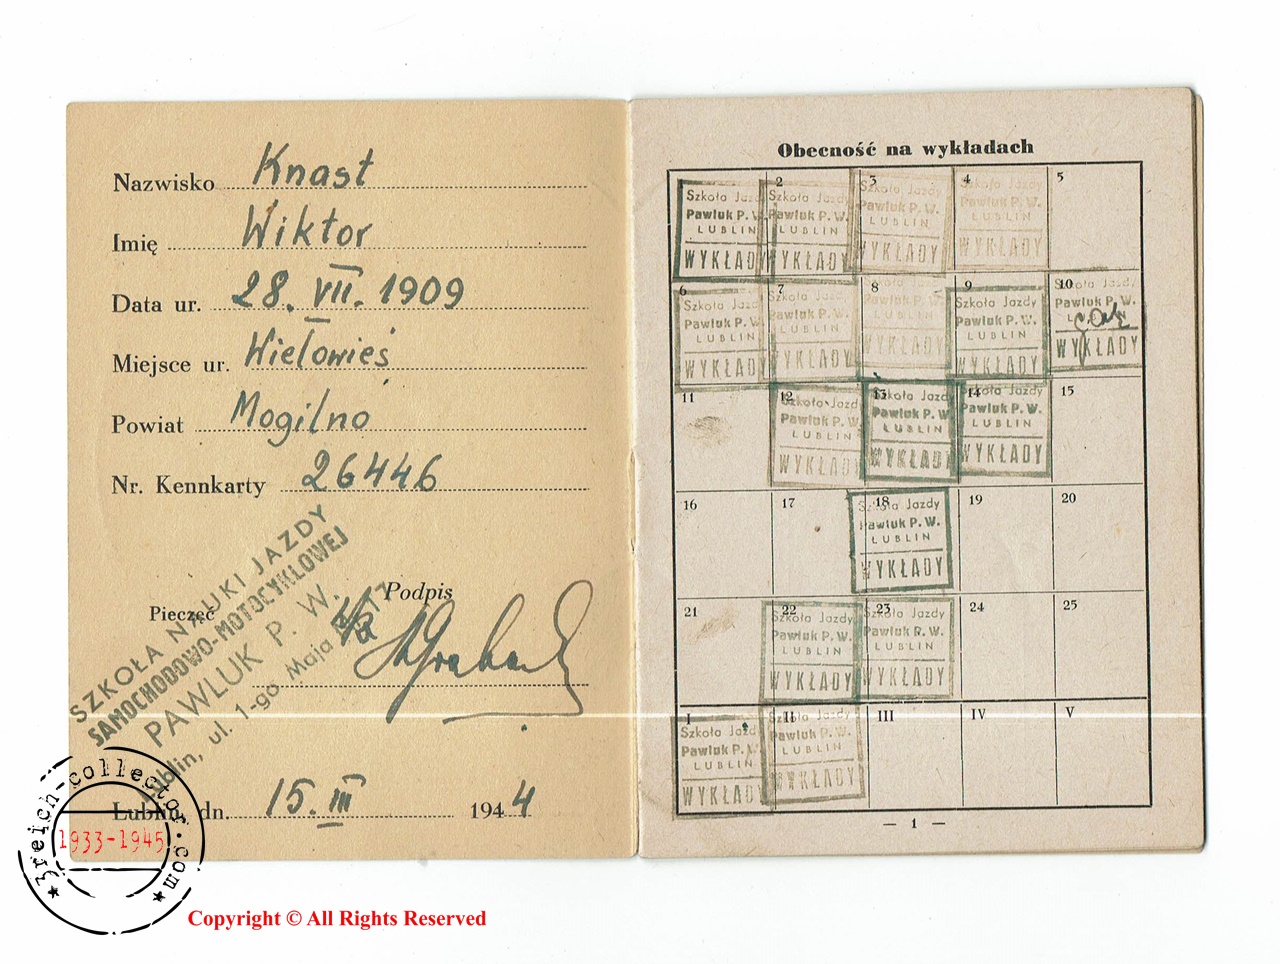 Nazwisko Knast
Imię Wiktor
Data ur. 28. VII. 1909
Miejsce ur. Wielowieś
Powiat Mogilno
Nr. Kennkarty 26446
Pieczęć
Podpis
SZKOŁA NAUKI JAZDY
SAMOCHODOWO-MOTOCYKLOWEJ
PAWLUK P. W.
Lublin, ul. 1-go Maja 17
Lublin, dn. 15. III 1944
Obecność na wykładach
1 2 3 4 5
Szkoła Jazdy Szkoła Jazdy Szkoła Jazdy Szkoła Jazdy
Pawluk P. W. Pawluk P. W. Pawluk P. W. Pawluk P. W.
LUBLIN LUBLIN LUBLIN LUBLIN
WYKŁADY WYKŁADY WYKŁADY WYKŁADY
6 7 8 9 10
Szkoła Jazdy Szkoła Jazdy Szkoła Jazdy Szkoła Jazdy Szkoła Jazdy
Pawluk P. W. Pawluk P. W. Pawluk P. W. Pawluk P. W. Pawluk P. W.
LUBLIN LUBLIN LUBLIN LUBLIN LUBLIN
WYKŁADY WYKŁADY WYKŁADY WYKŁADY WYKŁADY
11 12 13 14 15
Szkoła Jazdy Szkoła Jazdy Szkoła Jazdy
Pawluk P. W. Pawluk P. W. Pawluk P. W.
LUBLIN LUBLIN LUBLIN
WYKŁADY WYKŁADY WYKŁADY
16 17 18 19 20
Szkoła Jazdy
Pawluk P. W.
LUBLIN
WYKŁADY
21 22 23 24 25
Szkoła Jazdy Szkoła Jazdy
Pawluk P. W. Pawluk P. W.
LUBLIN LUBLIN
WYKŁADY WYKŁADY
I II III IV V
Szkoła Jazdy Szkoła Jazdy
Pawluk P. W. Pawluk P. W.
LUBLIN LUBLIN
WYKŁADY WYKŁADY
— 1 —
3reich-collector.com
1933-1945
Copyright © All Rights Reserved